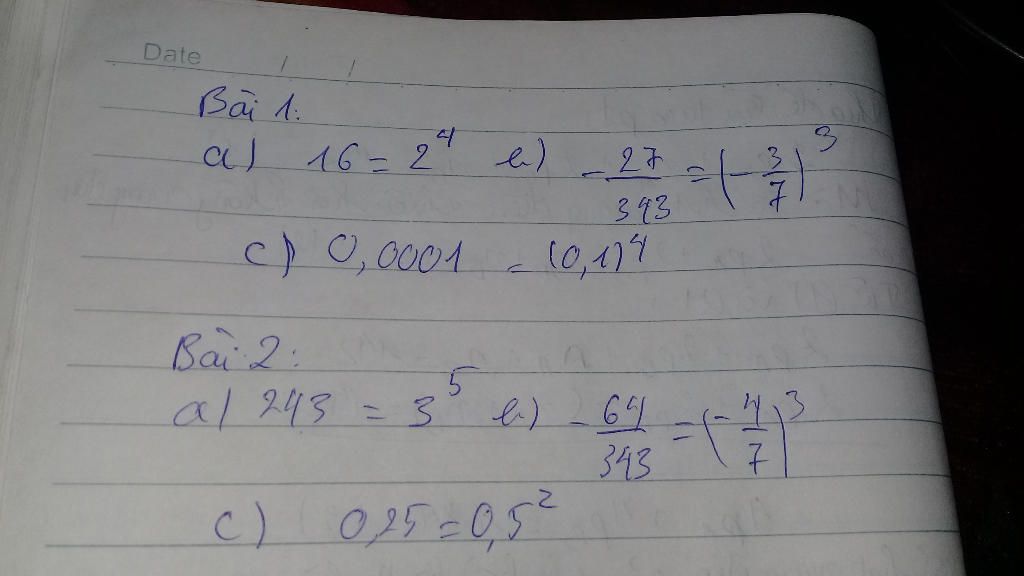 Date / /
Bài 1:
a) 16 = 2⁴ b) -27/343 = (-3/7)³
c) 0,0001 = (0,1)⁴
Bài 2:
a) 243 = 3⁵ b) -64/343 = (-4/7)³
c) 0,25 = 0,5²